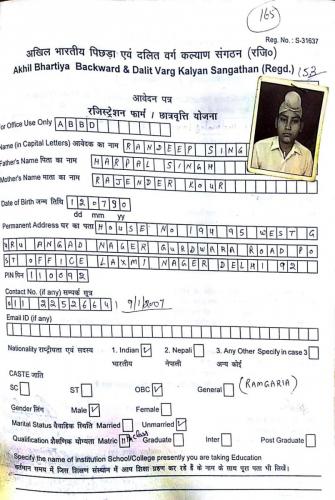 165
Reg. No.: S-31637
अखिल भारतीय पिछड़ा एवं दलित वर्ग कल्याण संगठन (रजि०)
Akhil Bhartiya Backward & Dalit Varg Kalyan Sangathan (Regd.)
152
आवेदन पत्र
रजिस्ट्रेशन फार्म / छात्रवृत्ति योजना
For Office Use Only A B B D
Name (in Capital Letters) आवेदक का नाम RANDEEP SING
Father's Name पिता का नाम HARPAL SINGH
Mother's Name माता का नाम RAJENDER KOUR
Date of Birth जन्म तिथि 120790
dd mm yy
Permanent Address घर का पता HOUSE NO 194 95 WEST G
URU ANGAD NAGER GURDWARA ROAD PO
ST OFFICE LAXMI NAGER DELHI 92
PIN पिन 110092
Contact No. (if any) सम्पर्क सूत्र
011 22526641 9/1/2007
Email ID (if any)
Nationality राष्ट्रीयता एवं सदस्य 1. Indian ✓ 2. Nepali 3. Any Other Specify in case 3
भारतीय नेपाली अन्य कोई
CASTE जाति
SC ST OBC ✓ General (RAMGARIA)
Gender लिंग Male ✓ Female
Marital Status वैवाहिक स्थिति Married Unmarried ✓
Qualification शैक्षणिक योग्यता Matric Graduate Inter Post Graduate
Specify the name of institution School/College presently you are taking Education
वर्तमान समय में जिस शिक्षण संस्थान में आप शिक्षा ग्रहण कर रहे हैं के नाम के साथ पूरा पता भी लिखें।